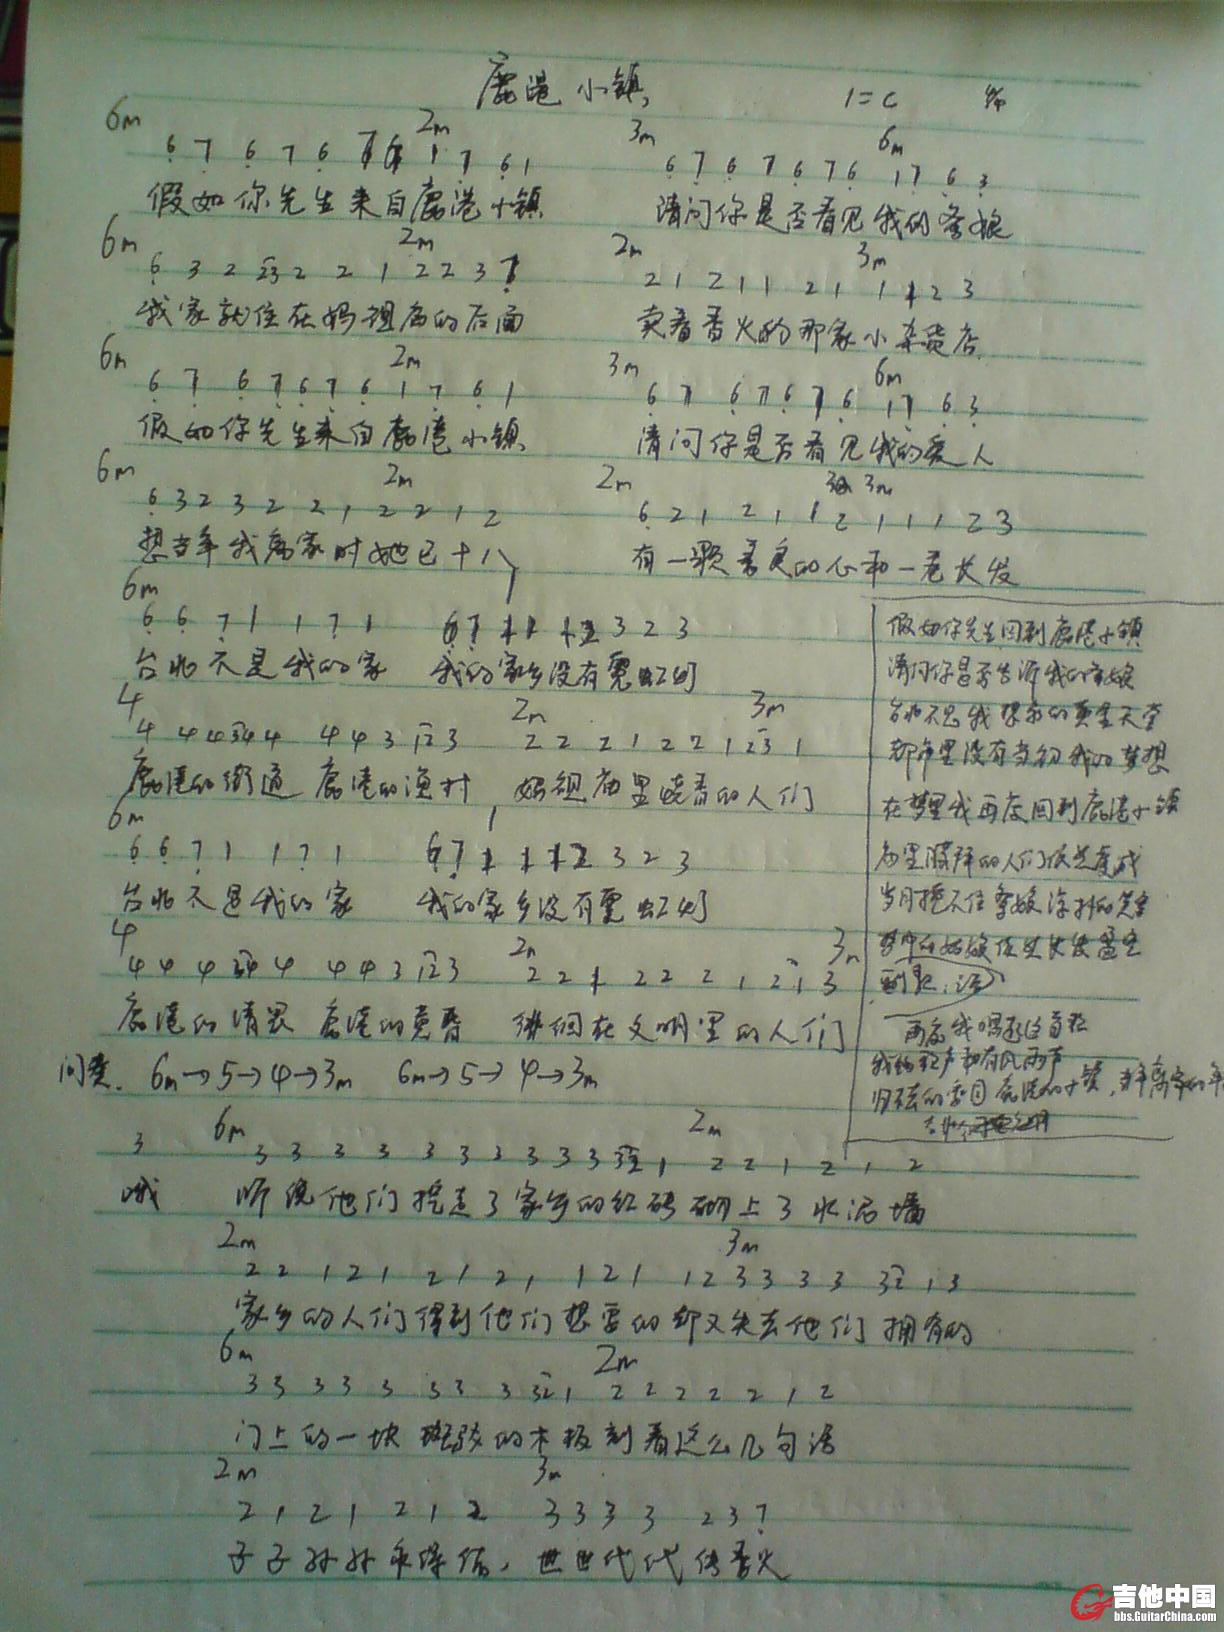 鹿港小镇 1=C
6m 2m 3m 6m
6 7 6 7 6 7 6 1 7 6 1 6 7 6 7 6 7 6 1 7 6 3
假如你先生来自鹿港小镇 请问你是否看见我的爹娘
6m 2m 2m 3m
6 3 2 23 2 2 1 2 2 3 1 2 1 2 1 1 2 1 1 1 2 3
我家就住在妈祖庙的后面 卖着香火的那家小杂货店
6m 2m 3m 6m
6 7 6 7 6 7 6 1 7 6 1 6 7 6 7 6 7 6 1 7 6 3
假如你先生来自鹿港小镇 请问你是否看见我的爱人
6m 2m 2m 3m
6 3 2 3 2 2 1 2 2 1 2 6 2 1 2 1 1 2 1 1 1 2 3
想当年我离家时她已十八 有一颗善良的心和一卷长发
6m
6 6 7 1 1 7 1 6 7 1 1 1 2 3 2 3
台北不是我的家 我的家乡没有霓虹灯
4 2m 3m
4 4 4 34 4 4 4 3 12 3 2 2 2 1 2 2 1 23 1
鹿港的街道 鹿港的渔村 妈祖庙里烧香的人们
6m
6 6 7 1 1 7 1 6 7 1 1 1 2 3 2 3
台北不是我的家 我的家乡没有霓虹灯
4 2m 3m
4 4 4 34 4 4 4 3 12 3 2 2 1 2 2 2 1 2 1 3
鹿港的清晨 鹿港的黄昏 徘徊在文明里的人们
间奏. 6m→5→4→3m 6m→5→4→3m
6m 2m
3 3 3 3 3 3 3 3 3 3 32 1 2 2 1 2 1 2
哦 听说他们挖走了家乡的红砖砌上了水泥墙
2m 3m
2 2 1 2 1 2 1 2 1 1 2 1 1 2 3 3 3 3 32 1 3
家乡的人们得到他们想要的却又失去他们拥有的
6m 2m
3 3 3 3 3 3 3 3 32 1 2 2 2 2 2 1 2
门上的一块斑驳的木板刻着这么几句话
2m 3m
2 1 2 1 2 1 2 3 3 3 3 2 3 7
子子孙孙永保佑，世世代代传香火
假如你先生回到鹿港小镇
请问你是否告诉我的爹娘
台北不是我想象的黄金天堂
都市里没有当初我的梦想
在梦里我再度回到鹿港小镇
庙里膜拜的人们依然虔诚
岁月掩不住爹娘淳朴的笑容
梦中的姑娘依然长发盈空
再度我唱起这首歌
我的歌声和有风雨声
归不去的家园 鹿港的小镇，当年离家的年
吉他中国
bbs.GuitarChina.com